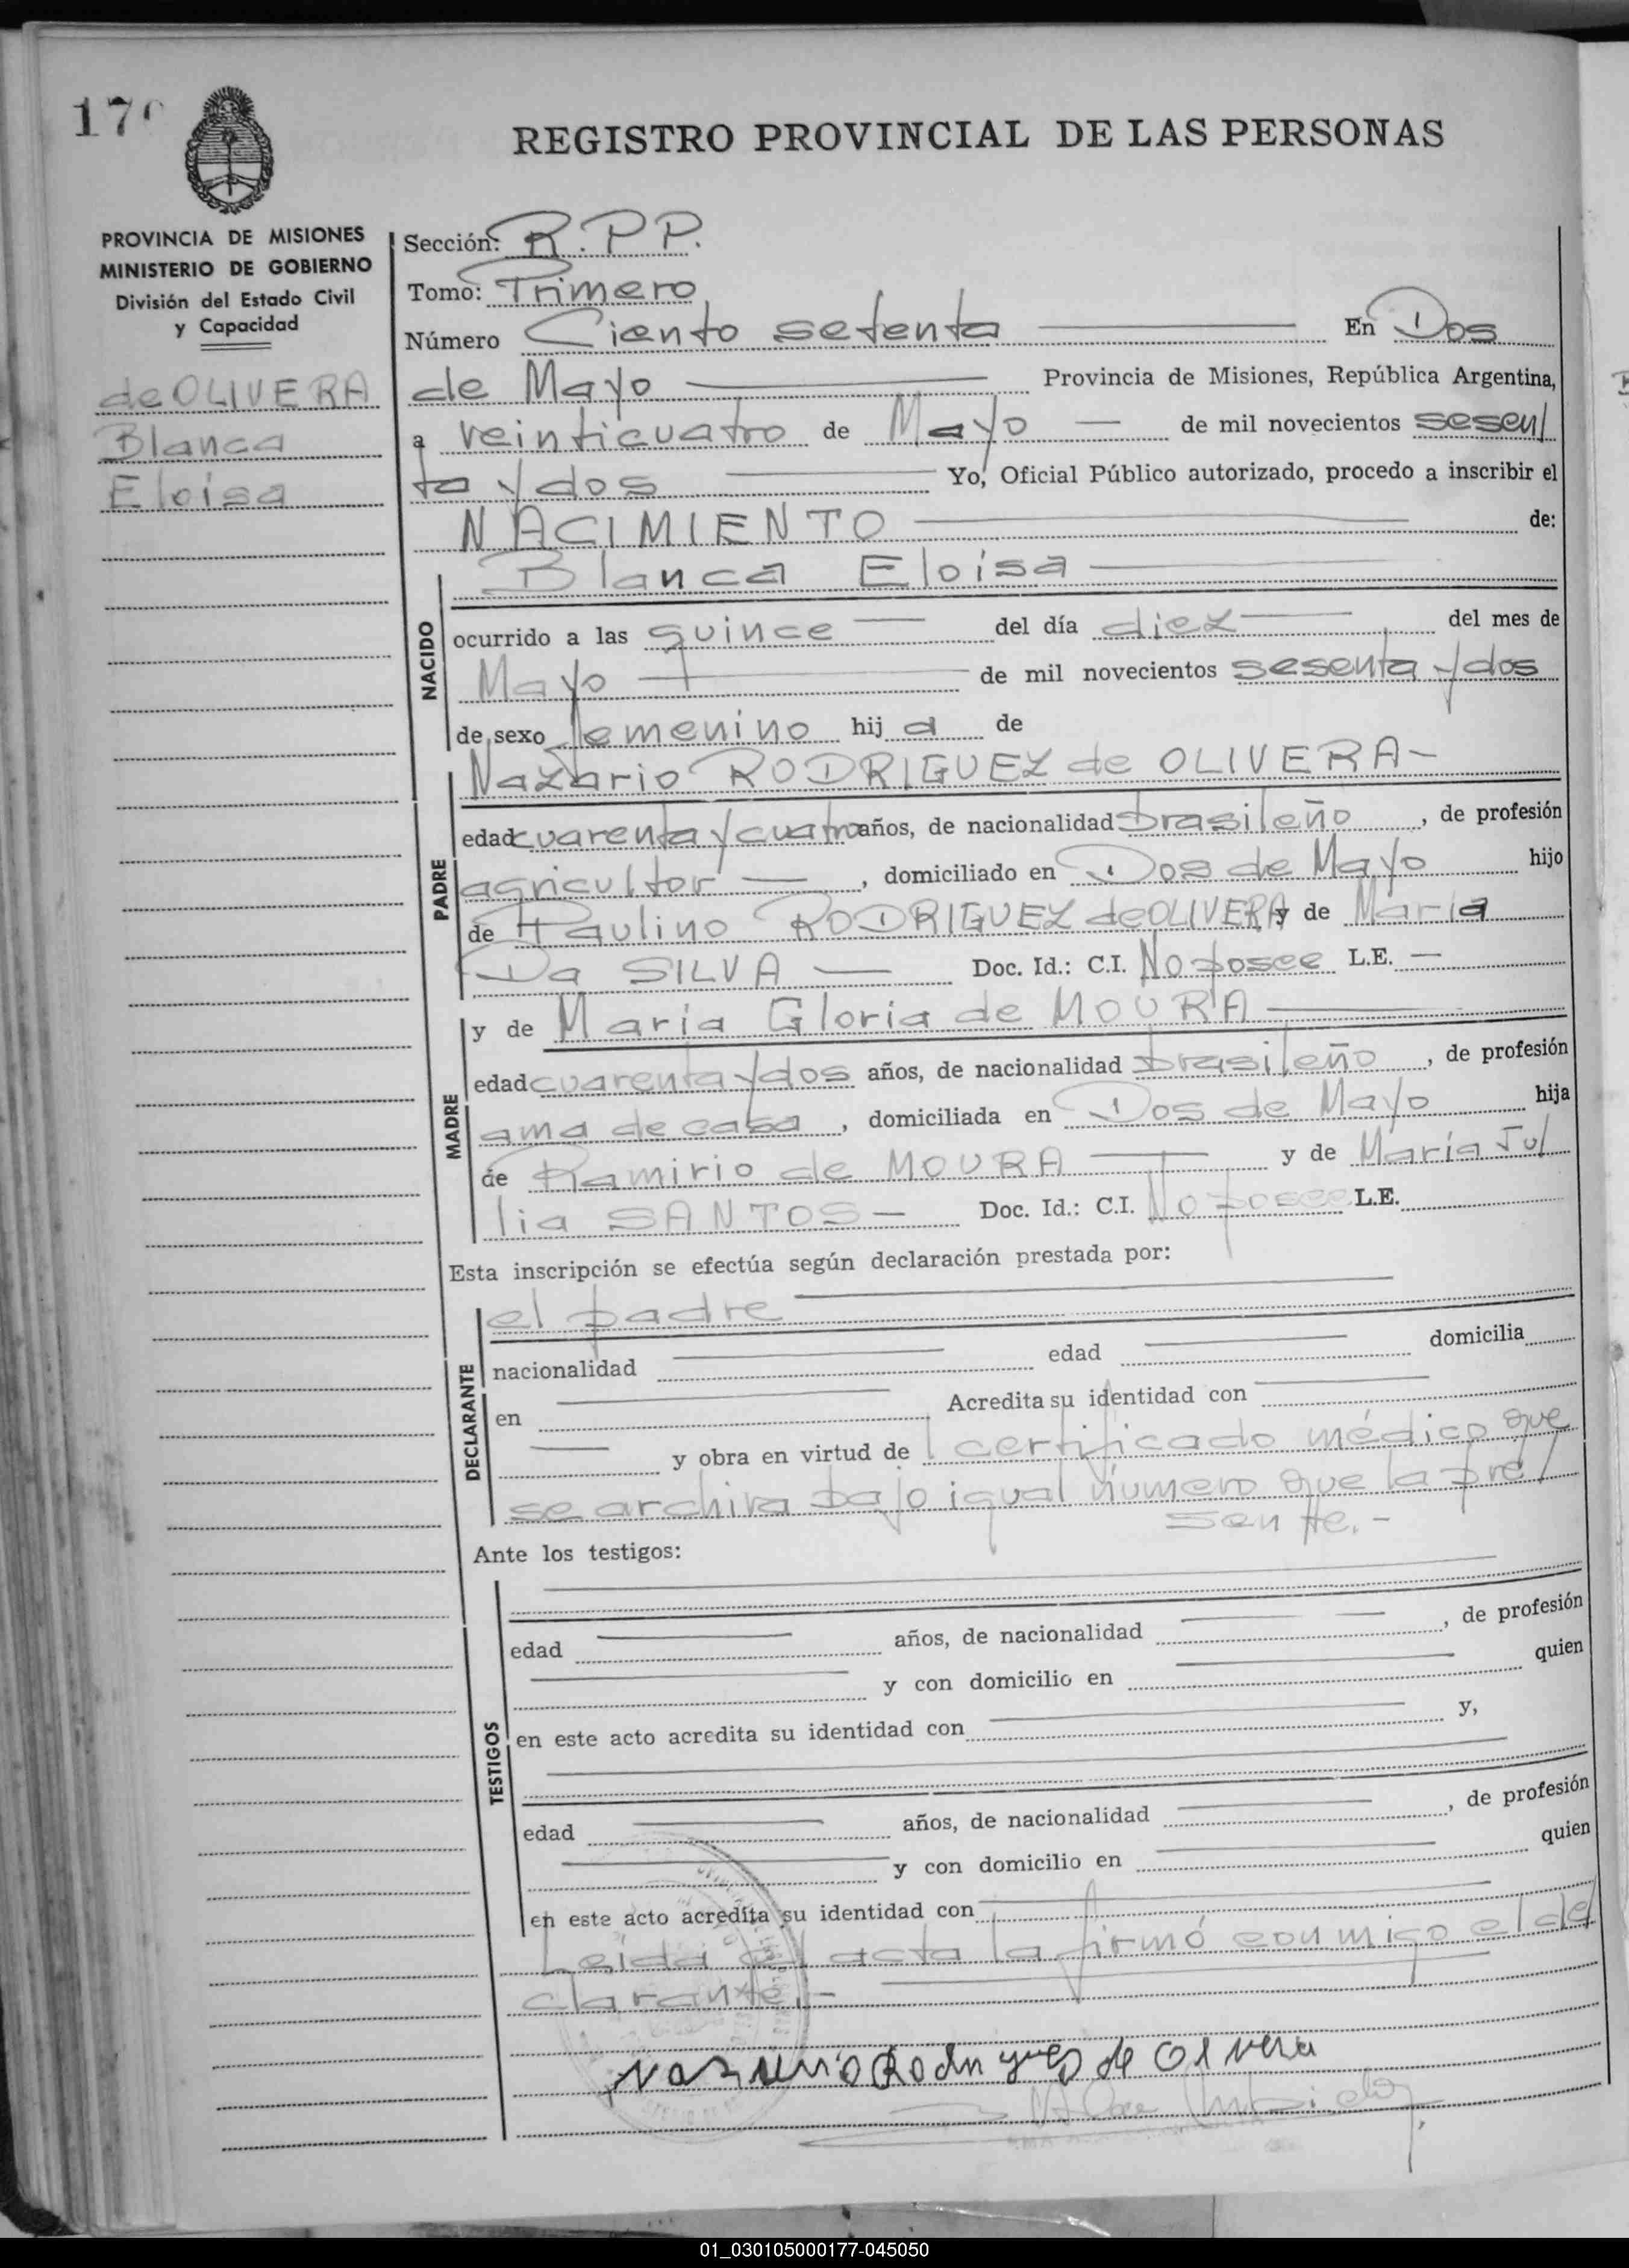 170
REGISTRO PROVINCIAL DE LAS PERSONAS
PROVINCIA DE MISIONES
MINISTERIO DE GOBIERNO
División del Estado Civil
y Capacidad
de OLIVERA
Blanca
Eloisa
Sección: R.P.P.
Tomo: Primero
Número Ciento setenta En Dos
de Mayo Provincia de Misiones, República Argentina,
a veinticuatro de Mayo — de mil novecientos sesen/
ta y dos Yo, Oficial Público autorizado, procedo a inscribir el
NACIMIENTO de:
Blanca Eloisa
NACIDO
ocurrido a las quince del día diez del mes de
Mayo de mil novecientos sesenta y dos
de sexo femenino hij a de
Nazario RODRIGUEZ de OLIVERA—
PADRE
edad cuarenta y cuatro años, de nacionalidad brasileño, de profesión
agricultor —, domiciliado en Dos de Mayo hijo
de Paulino RODRIGUEZ de OLIVERA y de María
Da SILVA — Doc. Id.: C.I. No posee L.E. —
y de María Gloria de MOURA
MADRE
edad cuarenta y dos años, de nacionalidad brasileño, de profesión
ama de casa, domiciliada en Dos de Mayo hija
de Ramirio de MOURA y de María Ju/
lia SANTOS — Doc. Id.: C.I. No posee L.E.
Esta inscripción se efectúa según declaración prestada por:
el padre
DECLARANTE
nacionalidad edad domicilia
en Acredita su identidad con
y obra en virtud del certificado médico que
se archiva bajo igual número que la pre/
sente.-
Ante los testigos:
TESTIGOS
edad años, de nacionalidad , de profesión
y con domicilio en quien
en este acto acredita su identidad con y,
edad años, de nacionalidad , de profesión
y con domicilio en quien
en este acto acredita su identidad con
Leída el acta la firmó conmigo el de/
clarante.-
Nazario Rodriguez de Olivera
01_030105000177-045050